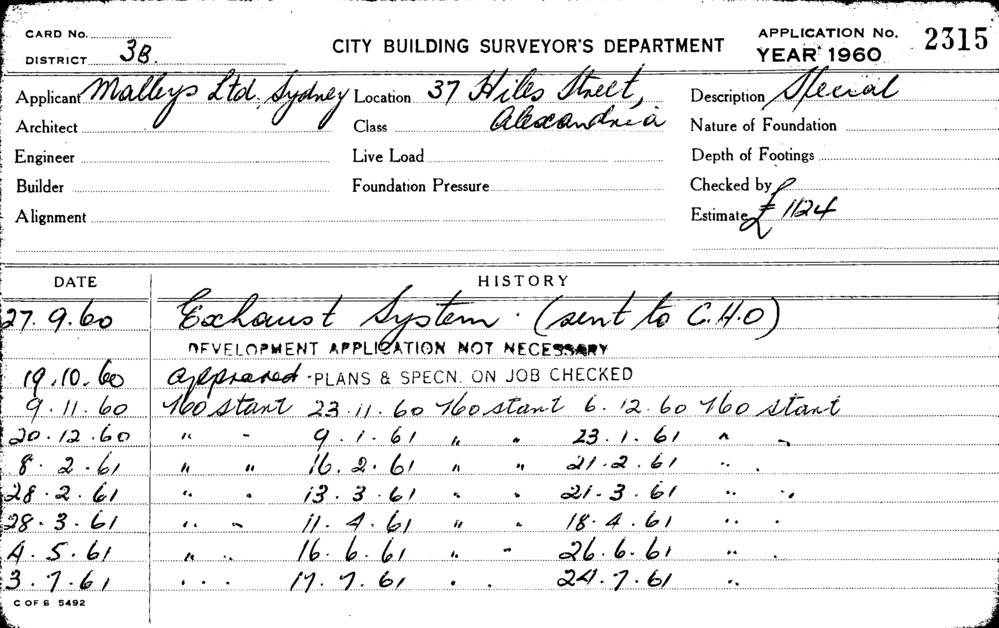 CARD No.
DISTRICT 3B.
CITY BUILDING SURVEYOR'S DEPARTMENT
APPLICATION No. 2315
YEAR 1960
Applicant Malleys Ltd. Sydney Location 37 Hiles Street, Description Special
Architect Class Alexandria Nature of Foundation
Engineer Live Load Depth of Footings
Builder Foundation Pressure Checked by
Alignment Estimate £ 1124
DATE HISTORY
27.9.60 Exhaust System. (sent to C.H.O)
DEVELOPMENT APPLICATION NOT NECESSARY
19.10.60 approved - PLANS & SPECN. ON JOB CHECKED
9.11.60 No start 23.11.60 No start 6.12.60 No start
20.12.60 " " 9.1.61 " " 23.1.61 " "
8.2.61 " " 16.2.61 " " 21.2.61 " "
28.2.61 " " 13.3.61 " " 21.3.61 " "
28.3.61 " " 11.4.61 " " 18.4.61 " "
4.5.61 " " 16.6.61 " " 26.6.61 " "
3.7.61 " " 17.7.61 " " 24.7.61 "
C OF S 5492